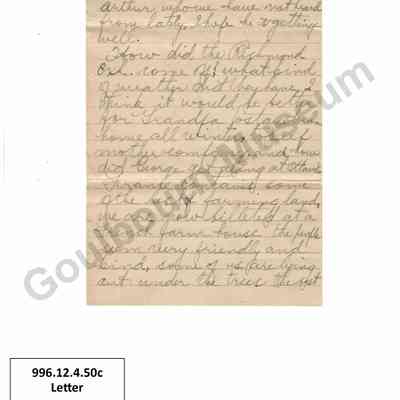 Arthur, whome have not heard
from latly, I hope he is getting
well.
How did the Richmond
Exh. come off, what kind
of weather did they have, I
think it would be better
for Grandfa to stay at
home all winter,
mother comfort and how
did George get along at Ottawa
France again, some
of the farming land,
we are now billeted at a
farm house the people
seem very friendly and
kind, some of us are lying
out under the trees the rest
Goulbourn Museum
996.12.4.50c
Letter